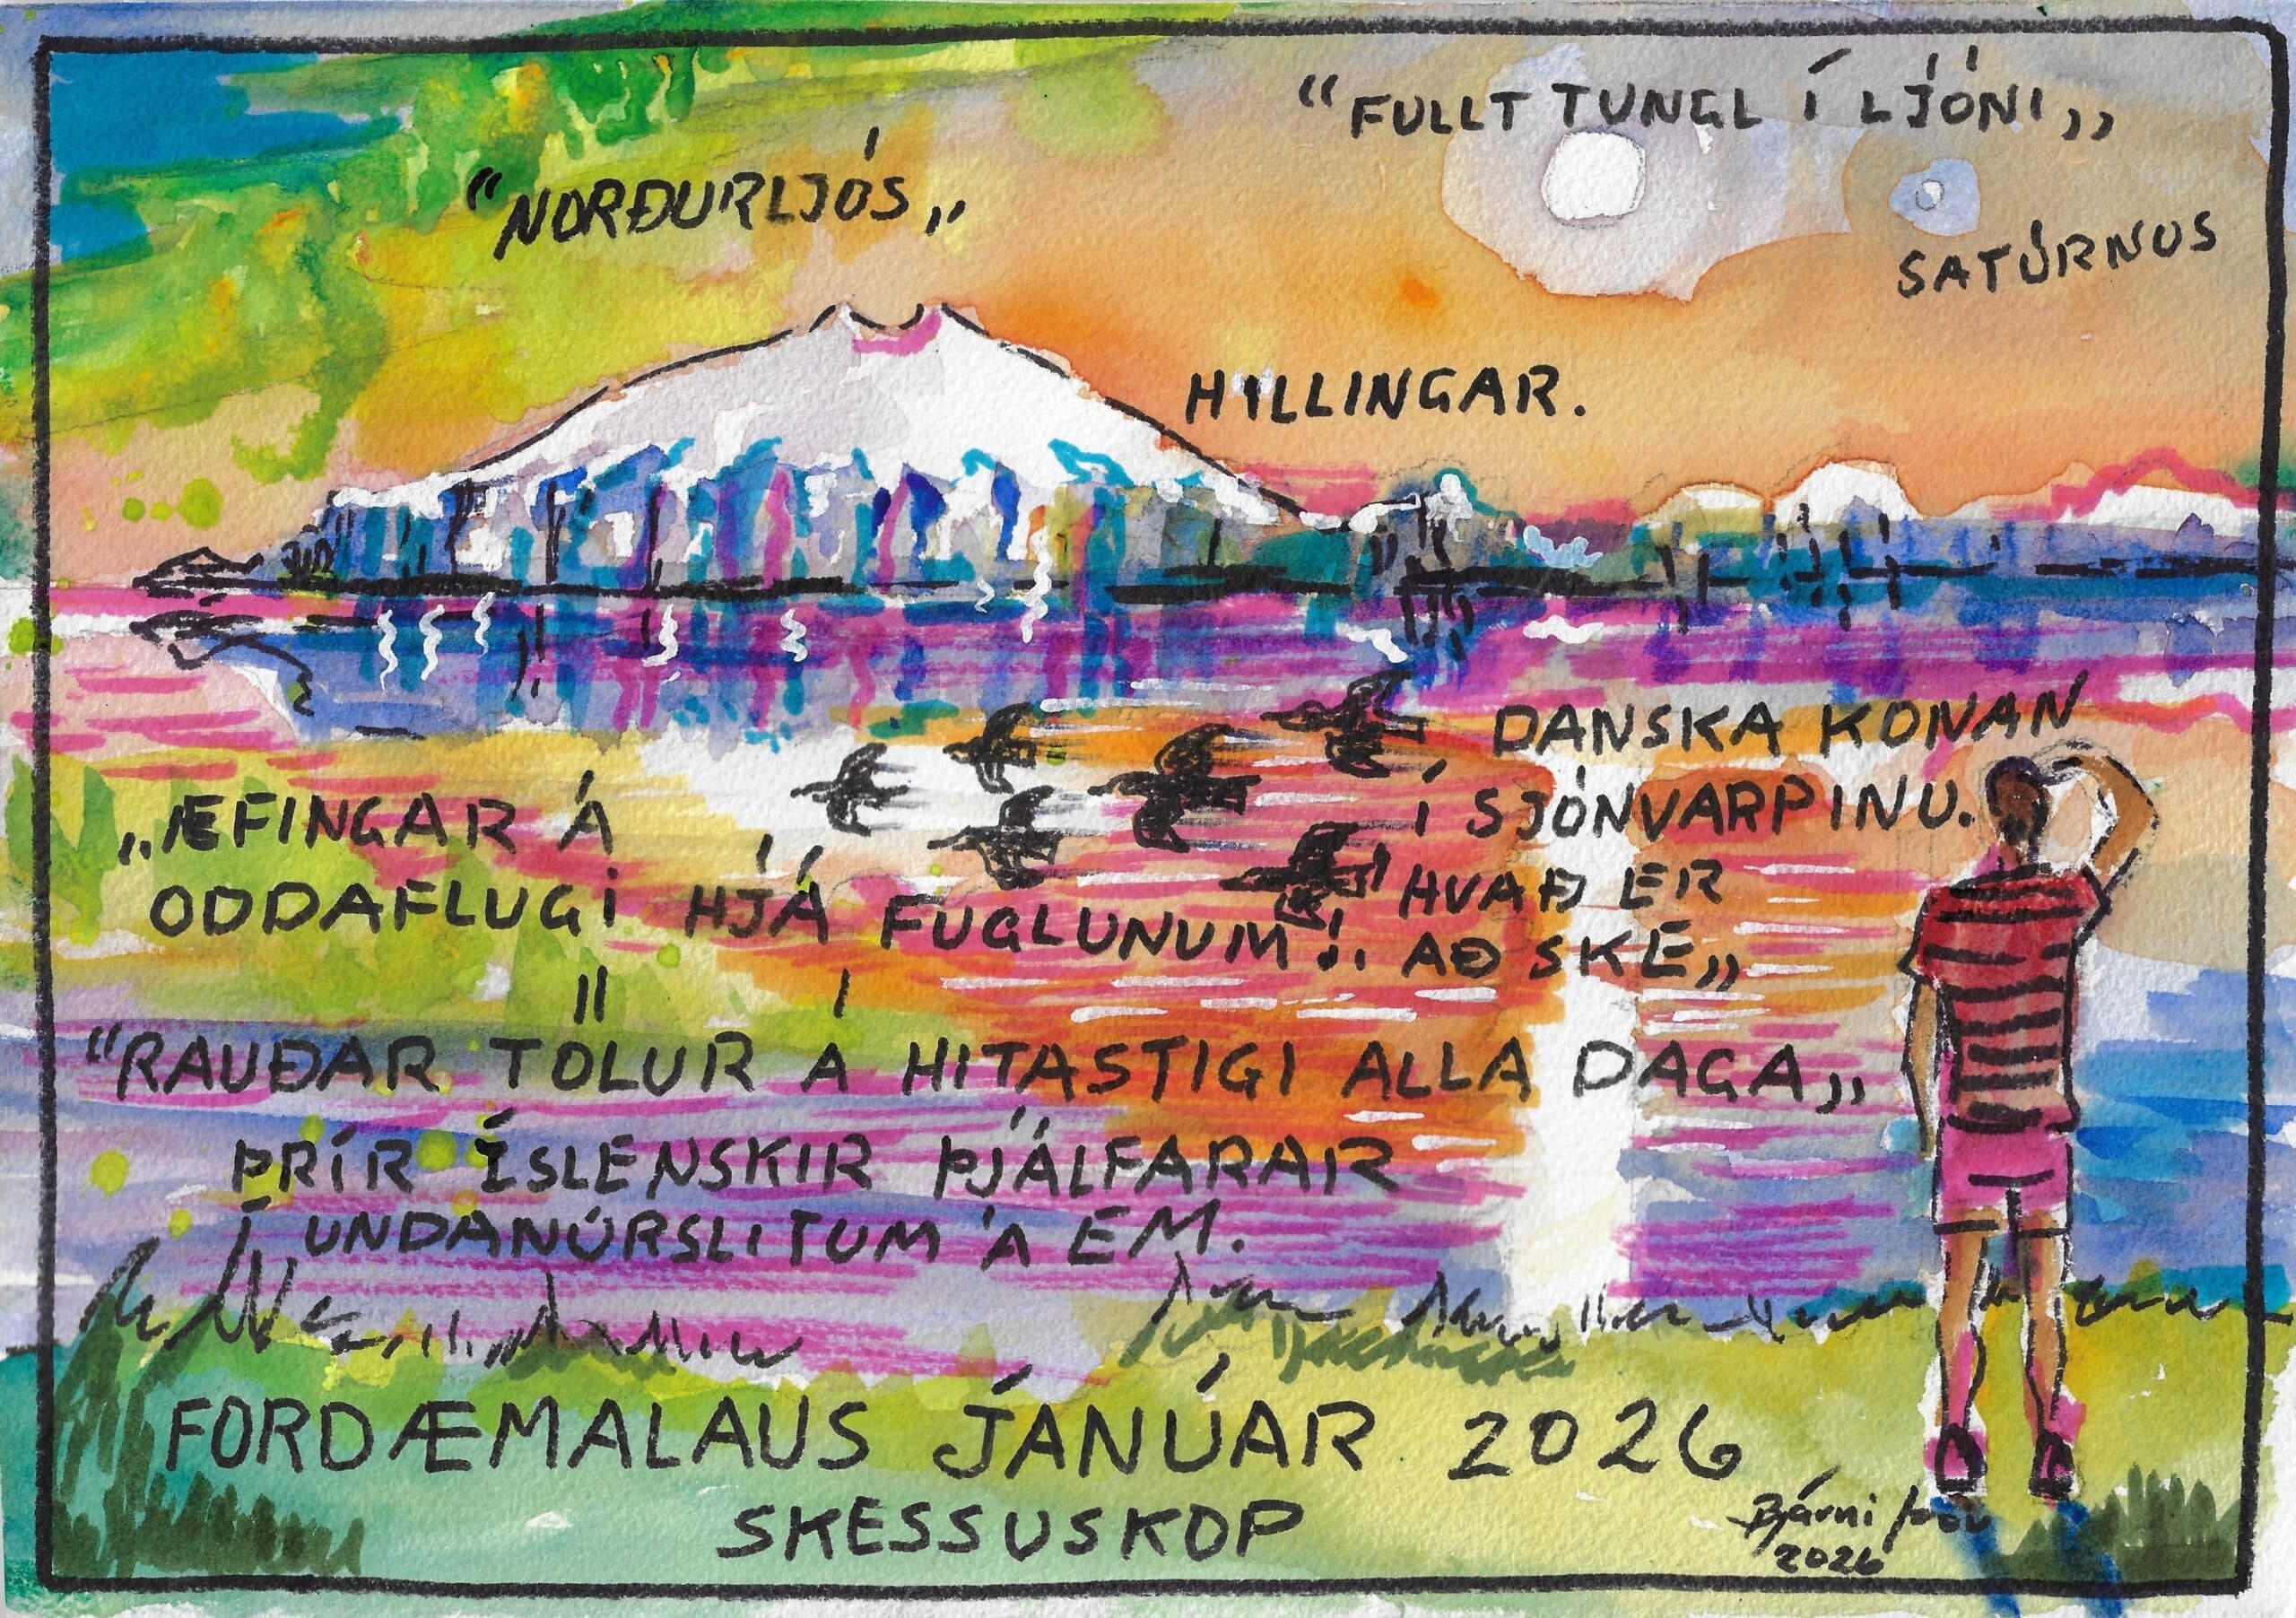 “FULLT TUNGL Í LJÓNI„
“NORÐURLJÓS„
SATÚRNUS
HILLINGAR.
DANSKA KONAN
Í SJÓNVARPINU.
„ÆFINGAR Á
ODDAFLUGI HJÁ FUGLUNUM!.
HVAÐ ER
AÐ SKE„
“RAUÐAR TÖLUR Á HITASTIGI ALLA DAGA„
ÞRÍR ÍSLENSKIR ÞJÁLFARAR
Í UNDANÚRSLITUM Á EM.
FORDÆMALAUS JANÚAR 2026
SKESSUSKOP
Bjarni
2026